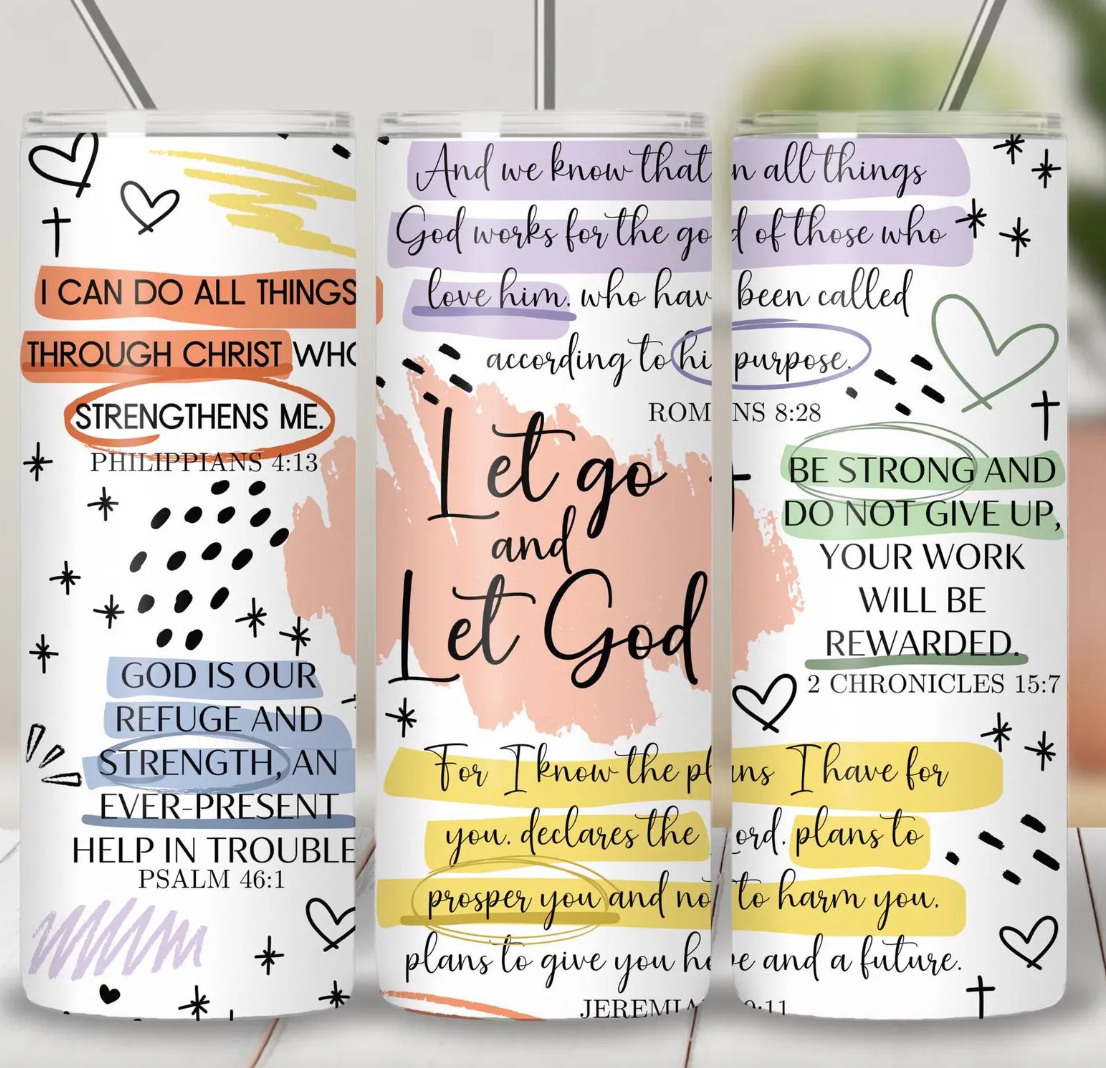 I CAN DO ALL THINGS
THROUGH CHRIST WHO
STRENGTHENS ME.
PHILIPPIANS 4:13
GOD IS OUR
REFUGE AND
STRENGTH, AN
EVER-PRESENT
HELP IN TROUBLE
PSALM 46:1
And we know that in all things
God works for the good of those who
love him, who have been called
according to his purpose.
ROMANS 8:28
Let go
and
Let God
For I know the plans I have for
you, declares the Lord, plans to
prosper you and not to harm you,
plans to give you hope and a future.
JEREMIAH 29:11
BE STRONG AND
DO NOT GIVE UP,
YOUR WORK
WILL BE
REWARDED.
2 CHRONICLES 15:7